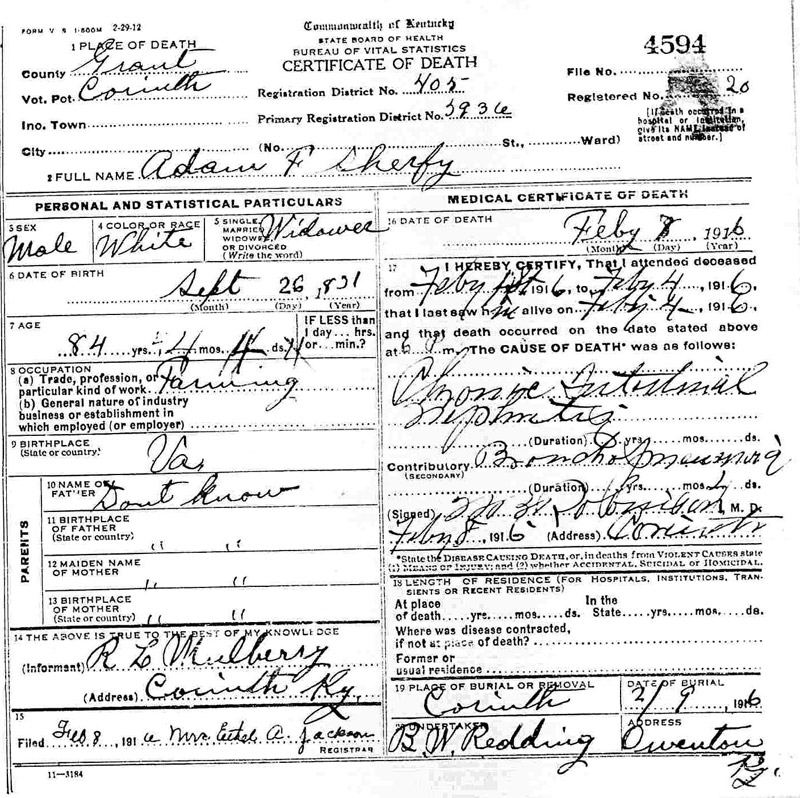 FORM V. S. 1-500M 2-29-12
Commonwealth of Kentucky
STATE BOARD OF HEALTH
BUREAU OF VITAL STATISTICS
CERTIFICATE OF DEATH
1 PLACE OF DEATH
County Grant
Vot. Pct. Corinth
Inc. Town
City (No. St., Ward)
Registration District No. 405
Primary Registration District No. 5936
4594
File No.
Registered No. 20
[If death occurred in a
hospital or institution,
give its NAME instead of
street and number.]
2 FULL NAME Adam F Sherfy
PERSONAL AND STATISTICAL PARTICULARS
3 SEX
Male
4 COLOR OR RACE
White
5 SINGLE,
MARRIED,
WIDOWED,
OR DIVORCED
(Write the word)
Widower
6 DATE OF BIRTH
Sept 26, 1831
(Month) (Day) (Year)
7 AGE
84 yrs. 4 mos. ds.
IF LESS than
1 day... hrs.
or... min.?
8 OCCUPATION
(a) Trade, profession, or
particular kind of work Farming
(b) General nature of industry
business or establishment in
which employed (or employer)
9 BIRTHPLACE
(State or country)
Va,
PARENTS
10 NAME OF
FATHER Dont Know
11 BIRTHPLACE
OF FATHER
(State or country) " "
12 MAIDEN NAME
OF MOTHER " "
13 BIRTHPLACE
OF MOTHER
(State or country) " "
14 THE ABOVE IS TRUE TO THE BEST OF MY KNOWLEDGE
(Informant) R L Mulberry
(Address) Corinth Ky,
15
Filed Feb 8, 1916 Mrs Ethel A. Jackson
REGISTRAR
11-3184
MEDICAL CERTIFICATE OF DEATH
16 DATE OF DEATH
Feby 8 1916
(Month) (Day) (Year)
17 I HEREBY CERTIFY, That I attended deceased
from Feby 1st 1916, to Feby 4, 1916,
that I last saw him alive on Feby 4, 1916,
and that death occurred on the date stated above
at 6 P m. The CAUSE OF DEATH* was as follows:
Chronic Intestinial
Nephritis
(Duration) yrs. mos. ds.
Contributory Broncho pneumonia
(SECONDARY)
(Duration) yrs. mos. ds.
(Signed) Robinson, M. D.
Feby 8, 1916 (Address) Corinth
*State the DISEASE CAUSING DEATH, or, in deaths from VIOLENT CAUSES state
(1) MEANS OF INJURY; and (2) whether ACCIDENTAL, SUICIDAL or HOMICIDAL.
18 LENGTH OF RESIDENCE (FOR HOSPITALS, INSTITUTIONS, TRAN-
SIENTS OR RECENT RESIDENTS)
At place In the
of death.....yrs.....mos.....ds. State.....yrs.....mos.....ds.
Where was disease contracted,
if not at place of death?
Former or
usual residence
19 PLACE OF BURIAL OR REMOVAL
Corinth
DATE OF BURIAL
2/9 1916
UNDERTAKER
B. W. Redding
ADDRESS
Owenton
Ky.